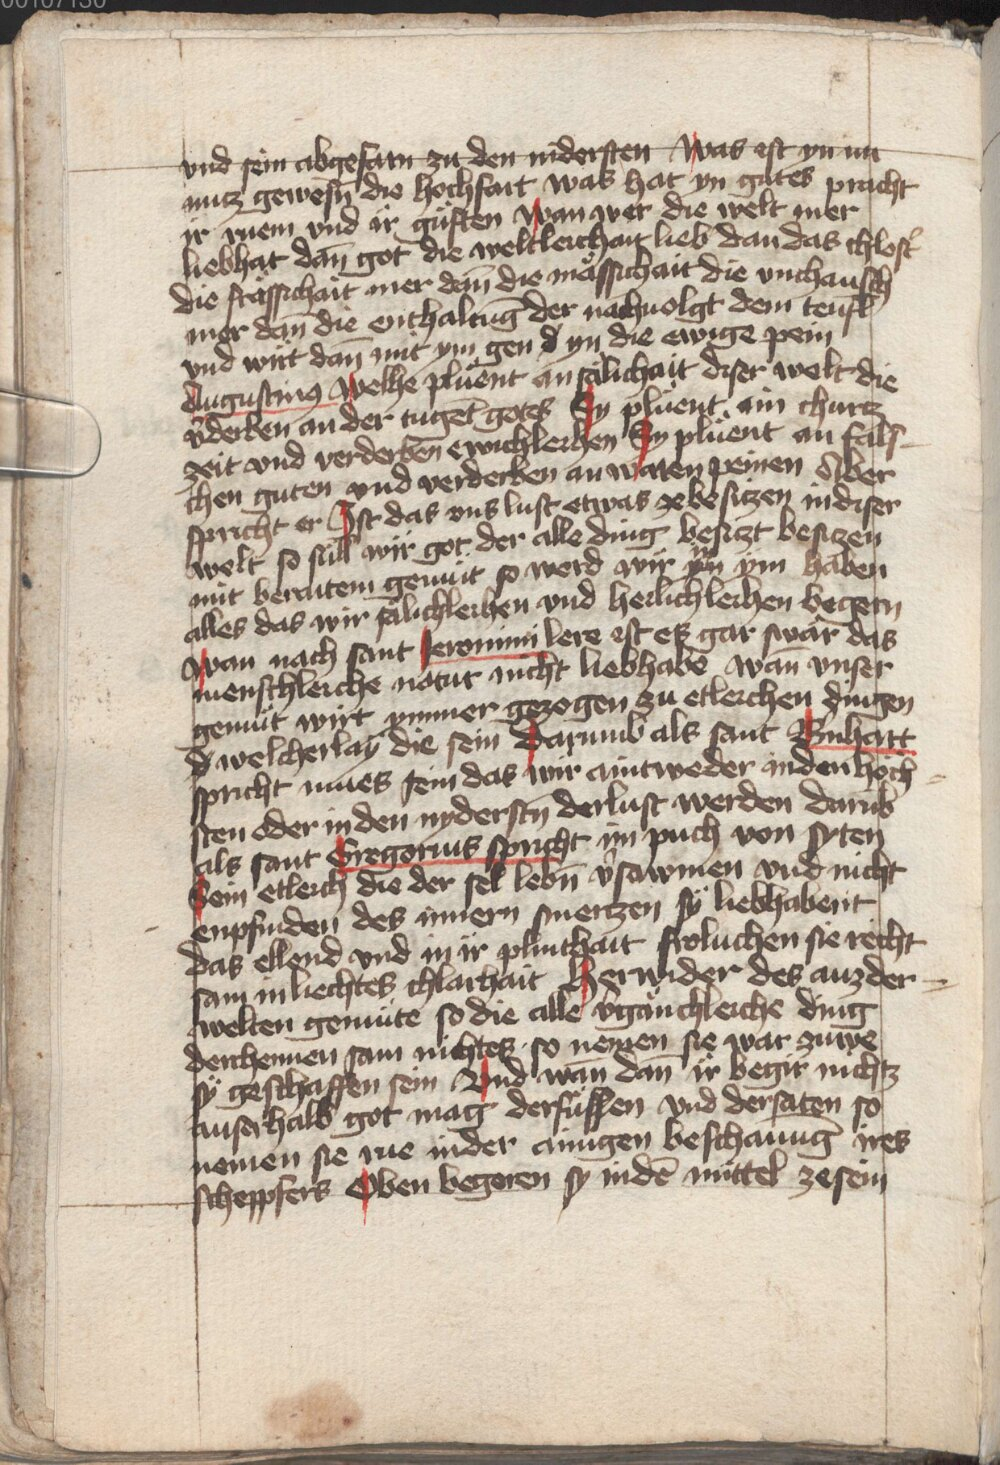 00107150
vnd sein abgefarn zu den nidersten Was ist yn nu
nutz gewesn̄ die hochfart was hat yn gutes pracht
ir ruem vnd ir güften Wan wer die welt mer
liebhat dan̄ got die weltleichait lieb dan das chlost̉
die frässichait mer dan̄ die mässichait die vnchausch
mer dan̄ die enthaltūg der nachuolgt dem teufl
vnd wirt dan̄ mit ym gen yn die ewige pein
Augustinus Welhe plüent an sälichait diser welt die
v̉derben an der tugēt gotes Sy plüent ain churtz
zeit vnd verderben̄ ewichleichen Sy plüent an fals-
chen guten vnd verderben an waren peinen Aber
spricht er Ist das vns lust etwas ze besitzen in diser
welt so süll wir got der alle ding besitzt besitzen
mit beraitem gemüt so werd wir in ym haben
alles das wir sälichleichen vnd heilichleichen begern
Wan nach sant Jeronimi lere ist es gar swär das
menschleiche natur nicht liebhabe wan̄ vnser
gemüt wirt ymmer gezogen zu etleichen dingen
welcherlay die sein Darumb als sant B̉nhart
spricht mues sein das wir aintweder in den höch-
sten oder in den nydersten̄ derlust werden darub̄
als sant Gregorius spricht im puch von syten
Sein etleich die der sel leben̄ v̉sawmen vnd nicht
enpfinden des innern smertzen sy liebhabent
das ellend vnd in ir plinthait froluchen sie recht
sam in liechtes chlarhait Herwider des auzder-
welten gemüte so die alle v̉gänchleiche ding
derchennen sam nichtes so nemen sie war zuwe
sy geschaffen sein Vnd wan̄ dan̄ ir begir nichtz
auserhalb got mag derfüllen vnd dersaten so
nemen sie rue in der ainigen beschauung ires
scheppfers Oben begeren sy in dē mittel ze sein